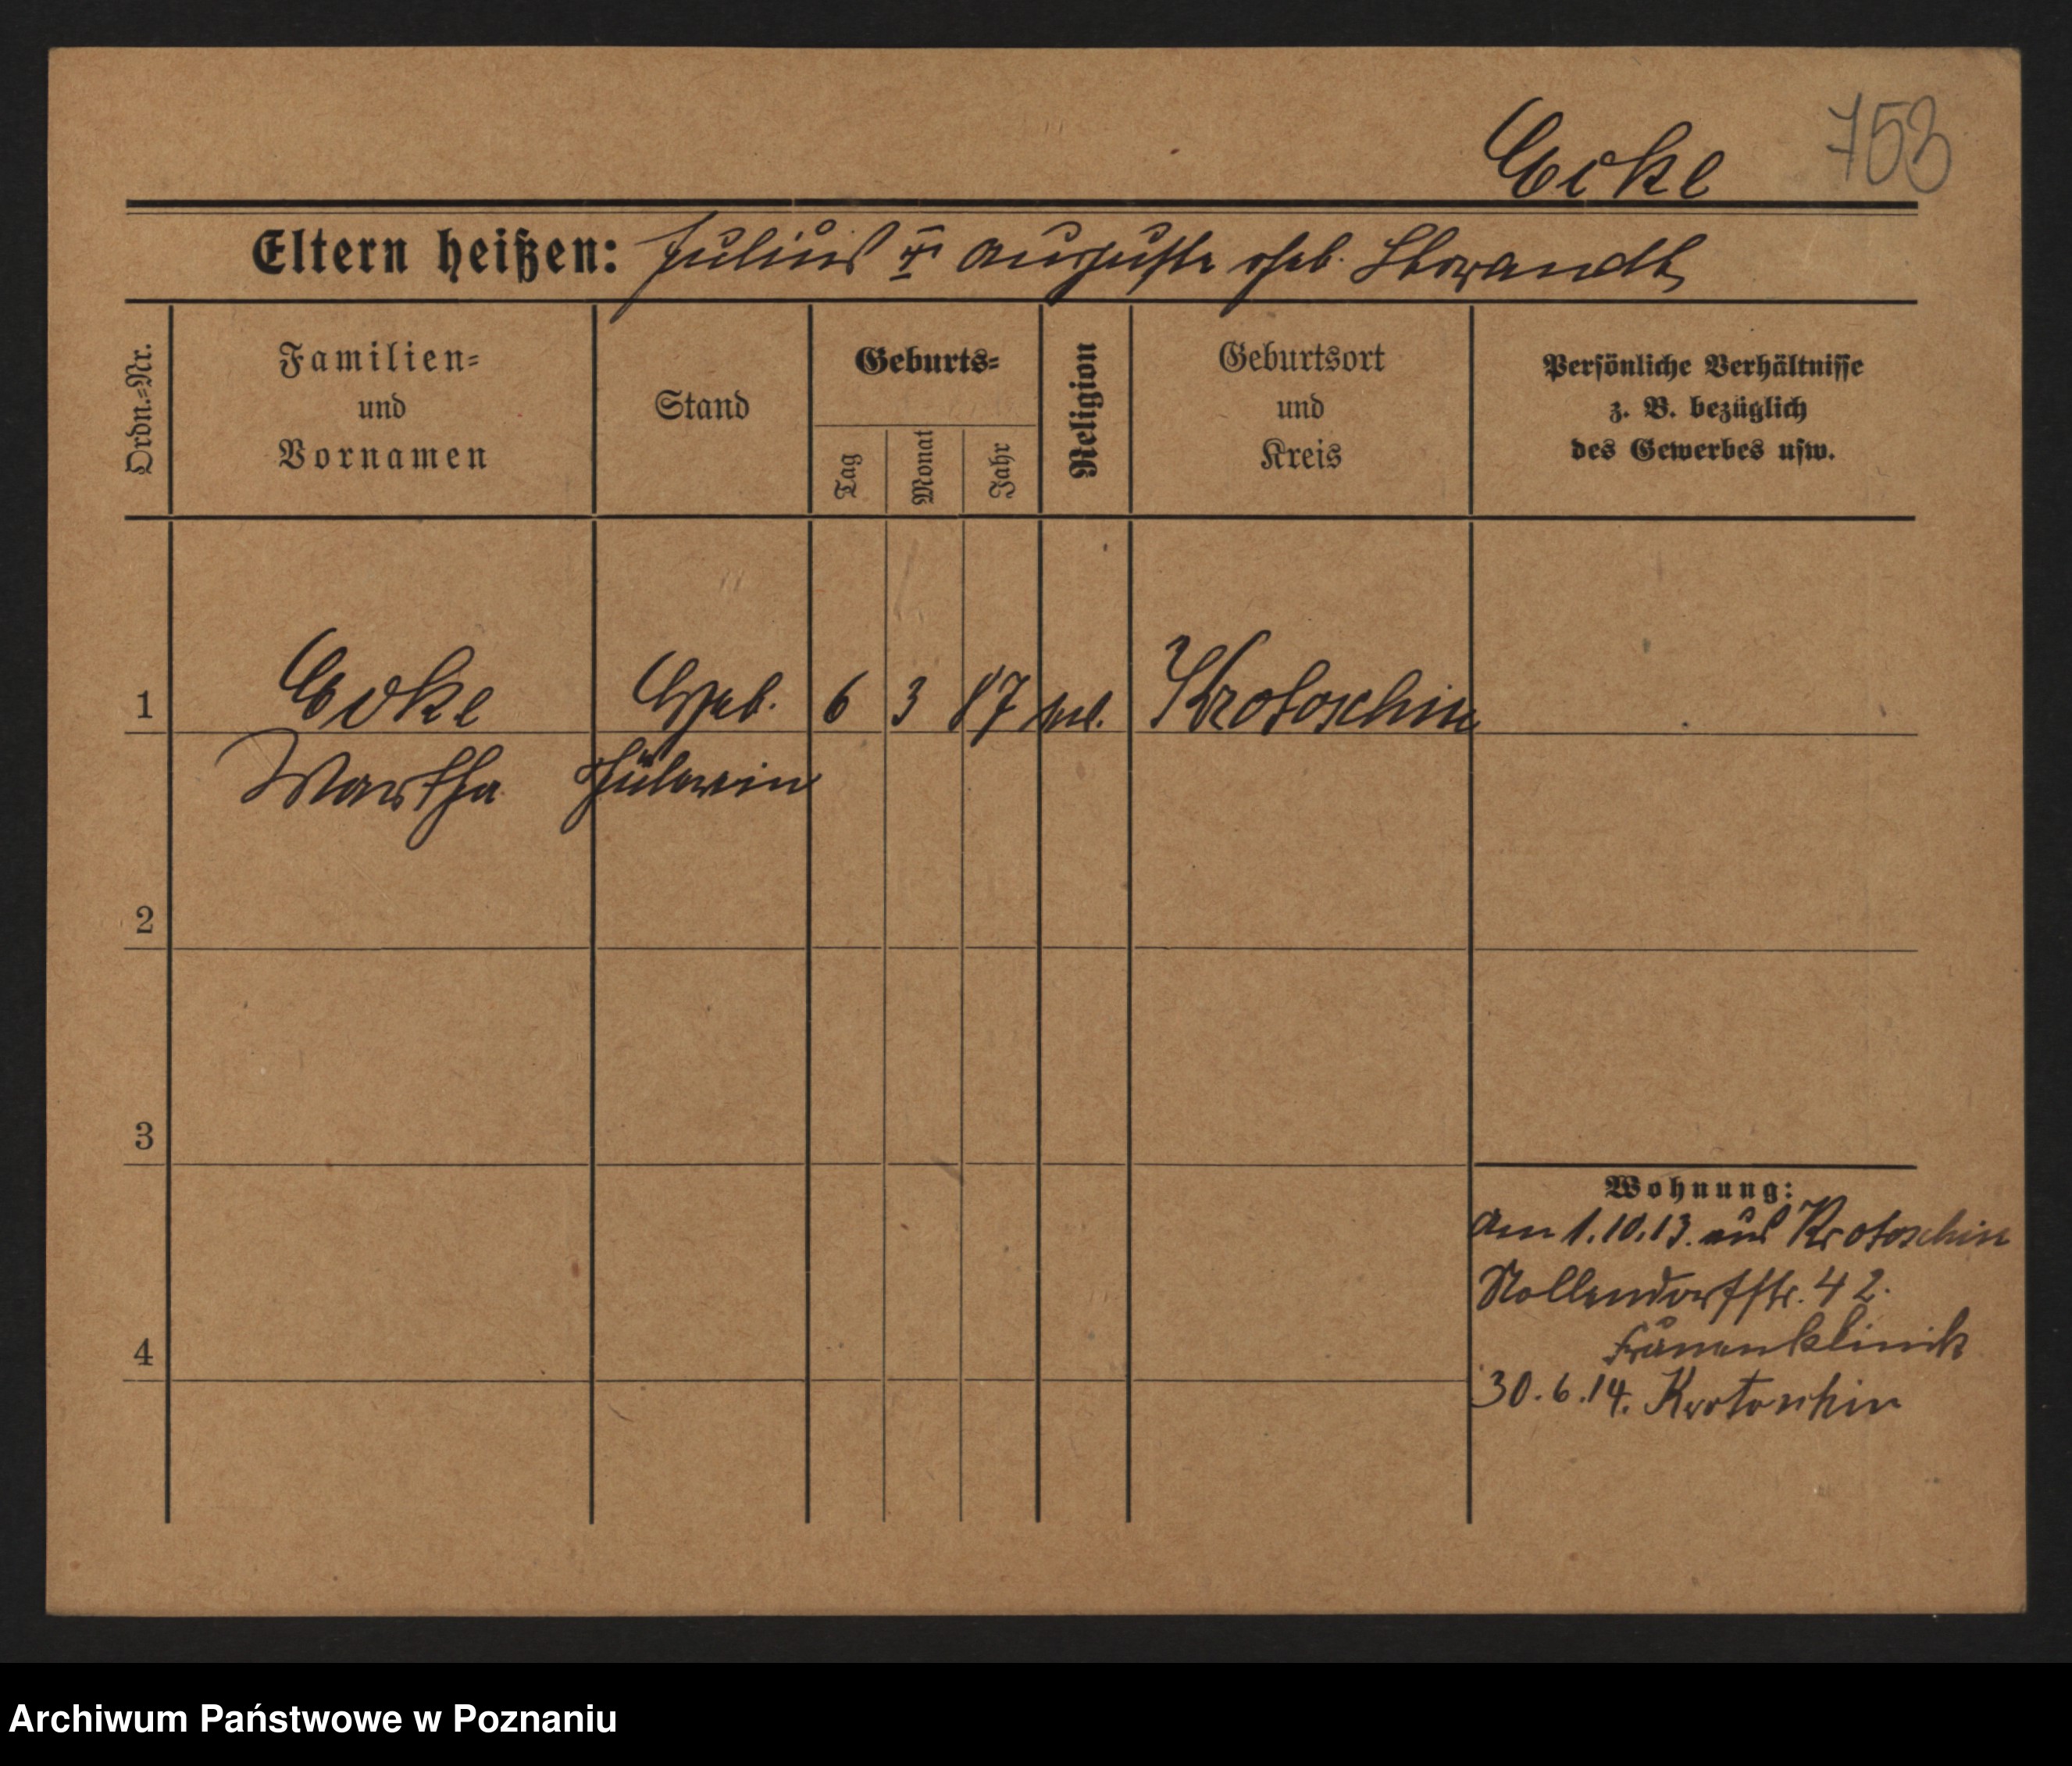 Ecke 753
Eltern heißen: Julius u Auguste geb.
Ordn.-Nr.
Familien-
und
Vornamen
Stand
Geburts-
Tag
Monat
Jahr
Religion
Geburtsort
und
Kreis
Persönliche Verhältnisse
z. B. bezüglich
des Gewerbes usw.
1 Ecke Geb. 6 3 87 Krotoschin
Martha Schülerin
2
3
Wohnung:
Am 1.10.13. aus Krotoschin
Nollendorfstr. 42.
Frauenklinik
4
30.6.14. Krotoschin
Archiwum Państwowe w Poznaniu